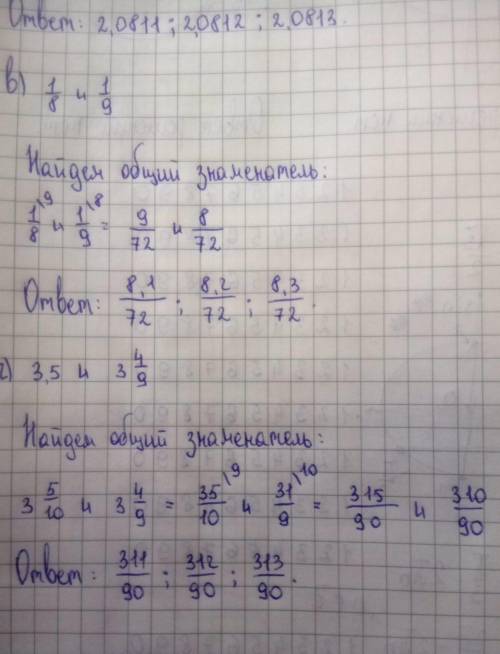 Ответ: 2,0811; 2,0812; 2,0813.
в) 1/8 и 1/9
Найдем общий знаменатель:
1/8 \9 и 1/9 \8 = 9/72 и 8/72
Ответ: 8,1/72; 8,2/72; 8,3/72.
г) 3,5 и 3 4/9
Найдем общий знаменатель:
3 5/10 и 3 4/9 = 35/10 \9 и 31/9 \10 = 315/90 и 310/90
Ответ: 311/90; 312/90; 313/90.